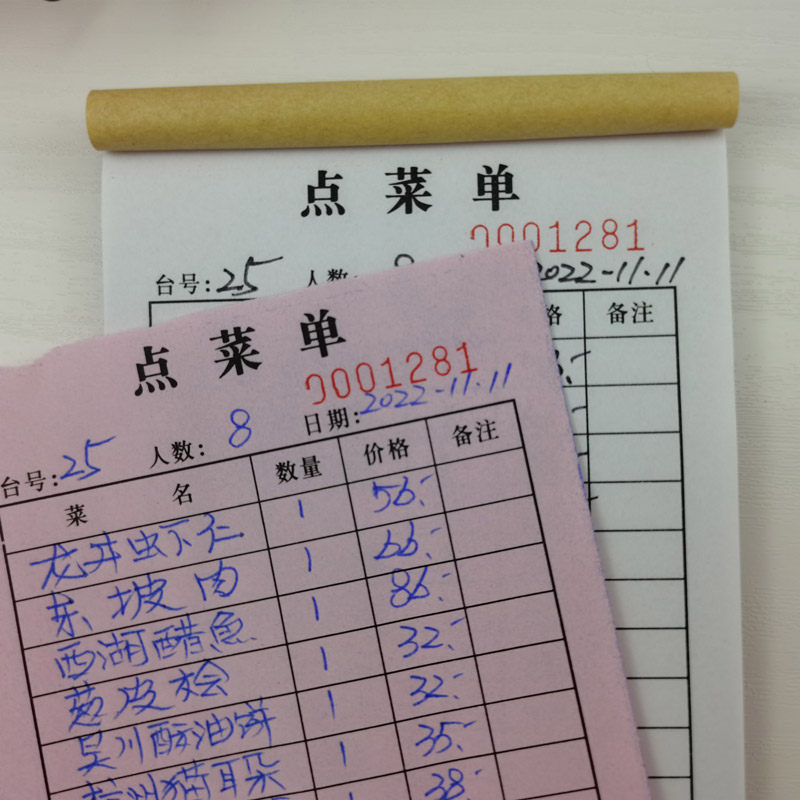 点菜单
0001281
台号:25 人数: 2022-11.11
格 备注
点菜单
0001281
台号:25 人数:8 日期:2022-11.11
菜名 数量 价格 备注
龙井虫下仁 1 56.-
东坡肉 1 66.-
西湖醋鱼 1 86.-
葱皮桧 1 32.-
吴川酥油饼 1 32.-
杭州猫耳朵 1 35.-
38.-